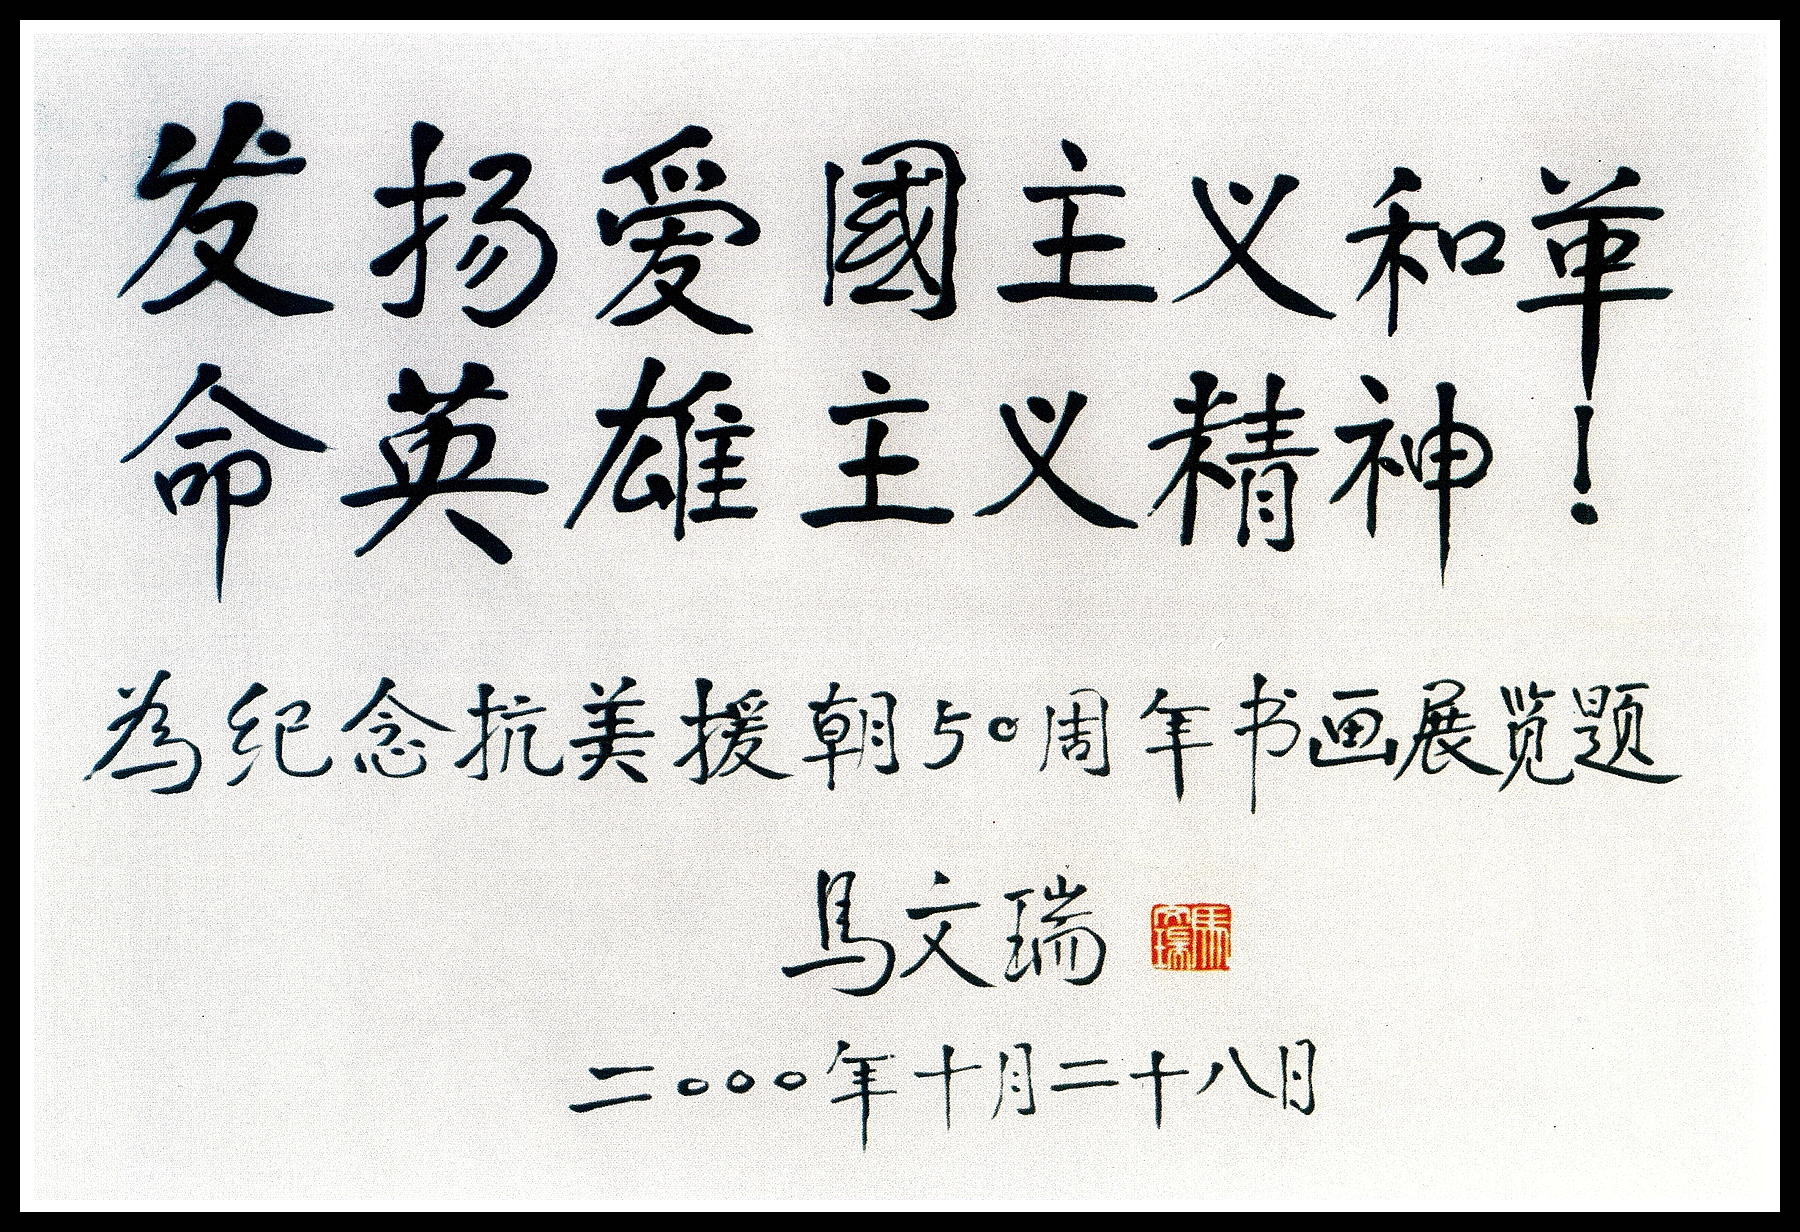 发扬爱國主义和革
命英雄主义精神！
為纪念抗美援朝50周年书画展览题
马文瑞
马文瑞
二〇〇〇年十月二十八日